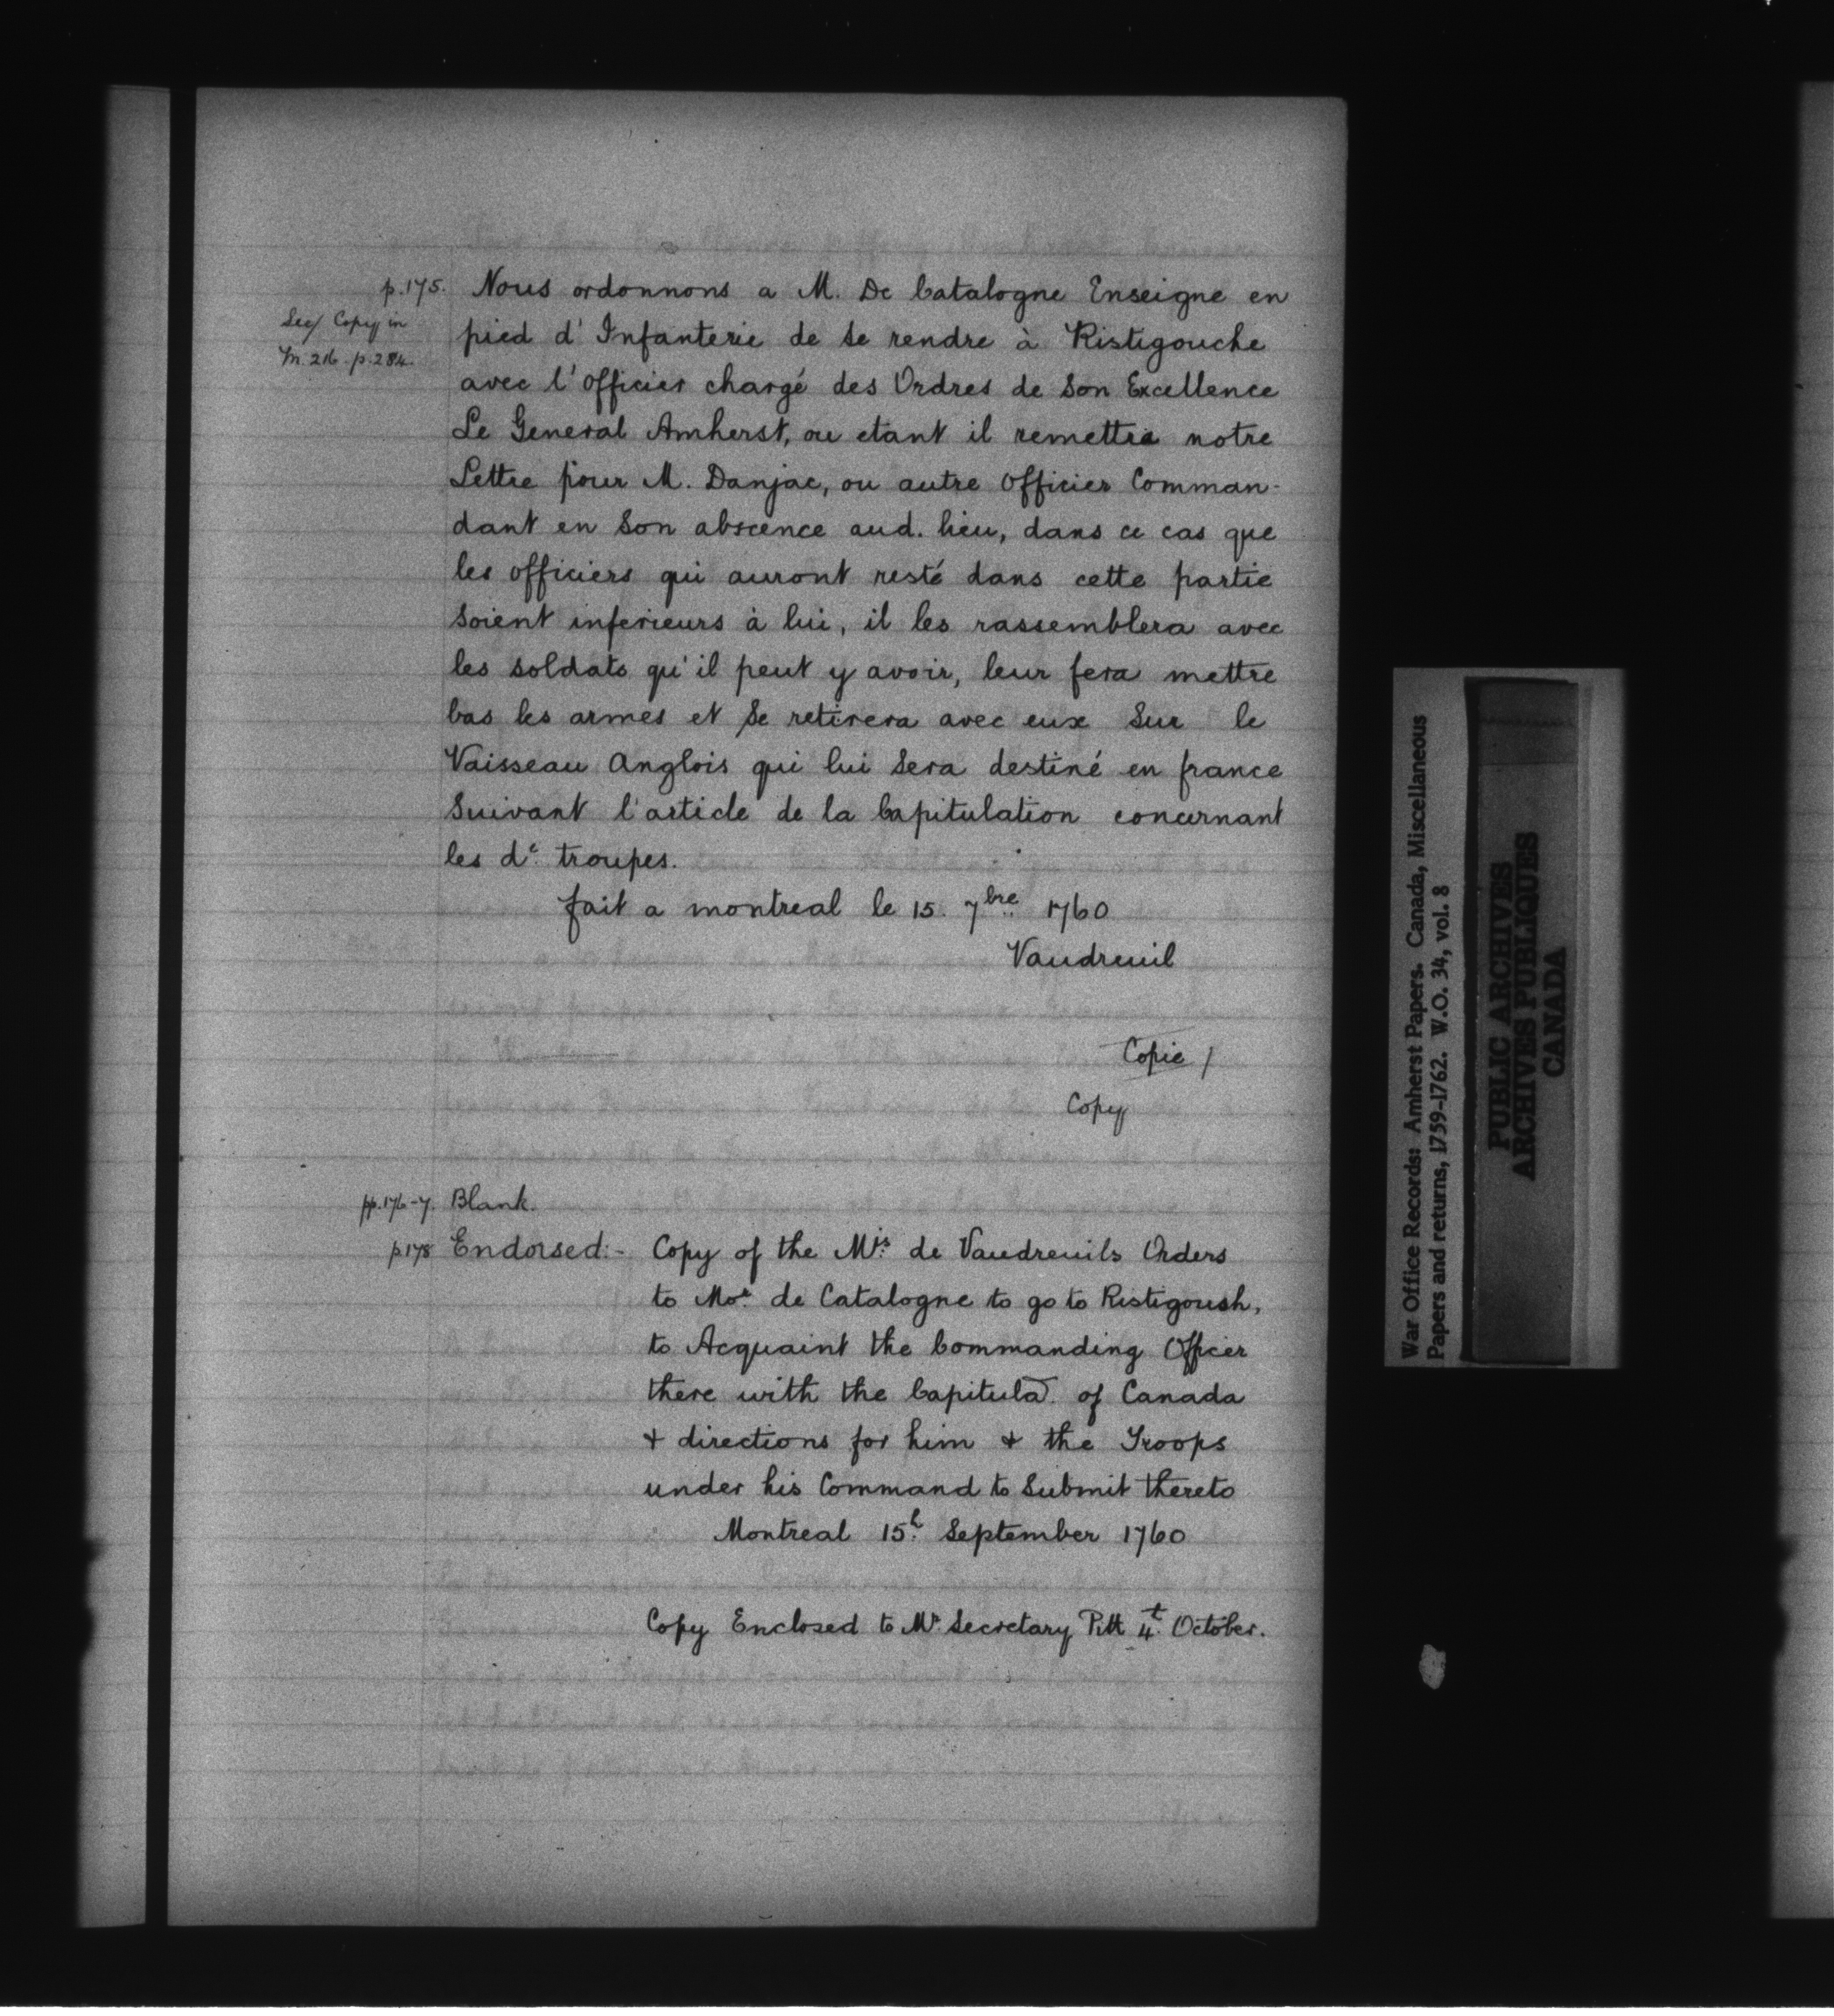 p.175. Nous ordonnons a M. De Catalogne Enseigne en
See/ Copy in
M. 216. p. 284.
pied d'Infanterie de se rendre à Ristigouche
avec l'officier chargé des Ordres de Son Excellence
Le General Amherst, ou etant il remettra notre
Lettre pour M. Danjac, ou autre officier Comman-
dant en Son abscence aud. lieu, dans ce cas que
les officiers qui auront resté dans cette partie
Soient inferieurs à lui, il les rassemblera avec
les soldats qu'il peut y avoir, leur fera mettre
bas les armes et Se retirera avec eux Sur le
Vaisseau Anglois qui lui Sera destiné en france
Suivant l'article de la Capitulation concernant
les de. troupes.
fait a montreal le 15. 7bre 1760
Vaudreuil
Copie /
Copy
pp.176-7. Blank.
p.178 Endorsed:- Copy of the Mis. de Vaudreuils Orders
to Mor. de Catalogne to go to Ristigoush,
to Acquaint the Commanding Officer
there with the Capitula. of Canada
+ directions for him + the Troops
under his Command to Submit thereto
Montreal 15th. September 1760
Copy Enclosed to Mr. Secretary Pitt 4t. October.
War Office Records: Amherst Papers. Canada, Miscellaneous
Papers and returns, 1759-1762. W.O. 34, vol. 8
PUBLIC ARCHIVES
ARCHIVES PUBLIQUES
CANADA